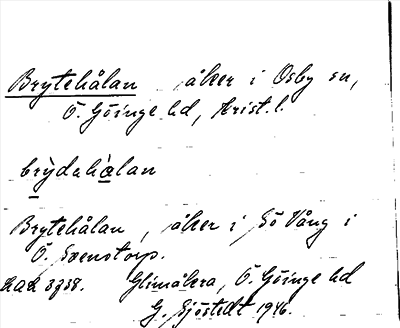 Brytehålan åker i Osby sn,
Ö. Göinge hd, Krist. l.
brỳdahàlan
Brytehålan, åker i Sö Vång i
Ö. Svenstorp.
kak 3938. Glimåkra, Ö. Göinge hd
G. Sjöstedt 1946.